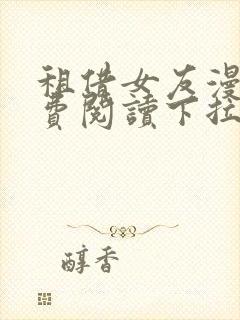 租借女友漫
費閱讀下拉
醇香